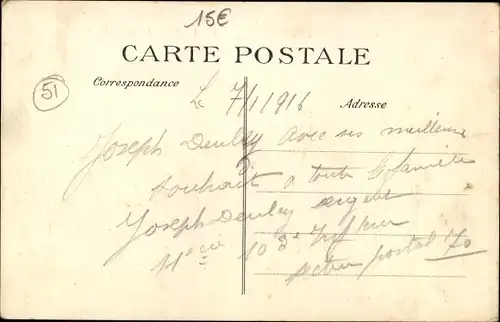 15€
CARTE POSTALE
51
Correspondance
Adresse
Le 7/1 1916
Joseph avec ses meilleurs
souhait a toute la famille
Joseph sergent
11e cie 10 3e
secteur postal 70